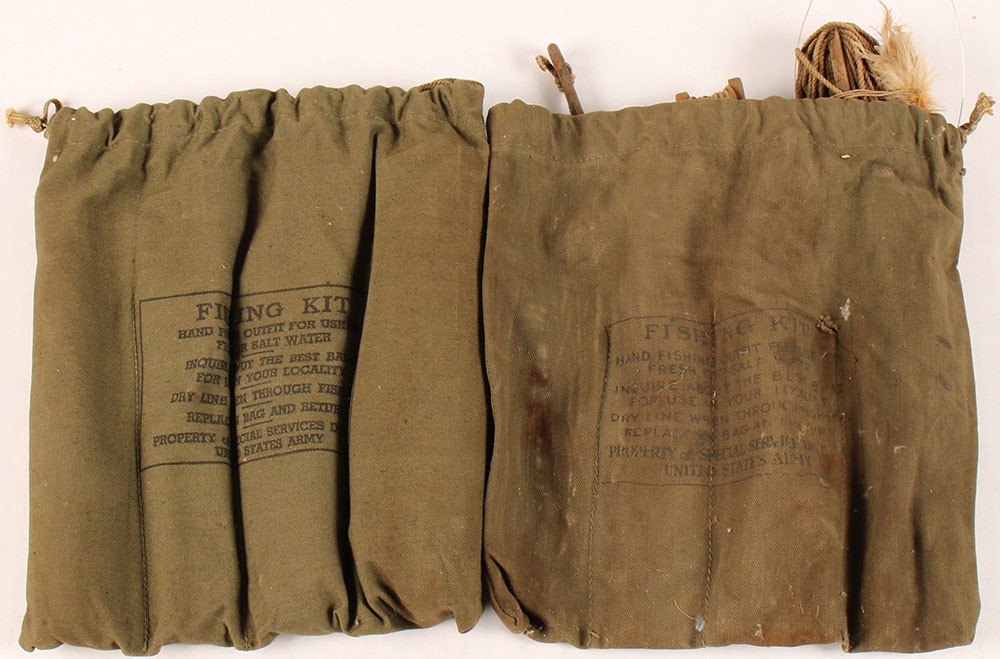 FI ING KIT
HAND F OUTFIT FOR USE
F R SALT WATER
INQUIR OUT THE BEST BA
FOR U N YOUR LOCALITY
DRY LINE EN THROUGH FIS
REPLAC N BAG AND RETUR
PROPERTY of CIAL SERVICES D
UNI STATES ARMY
FISHING KIT
HAND FISHING OUTFIT FOR
FRESH SALT
INQUIRE ABOUT THE BEST BA
FOR USE YOUR LOCALI
DRY LINE WHEN THROUGH
REPLACE IN BAG AND
PROPERTY of SPECIAL SERVICE
UNITED STATES ARMY